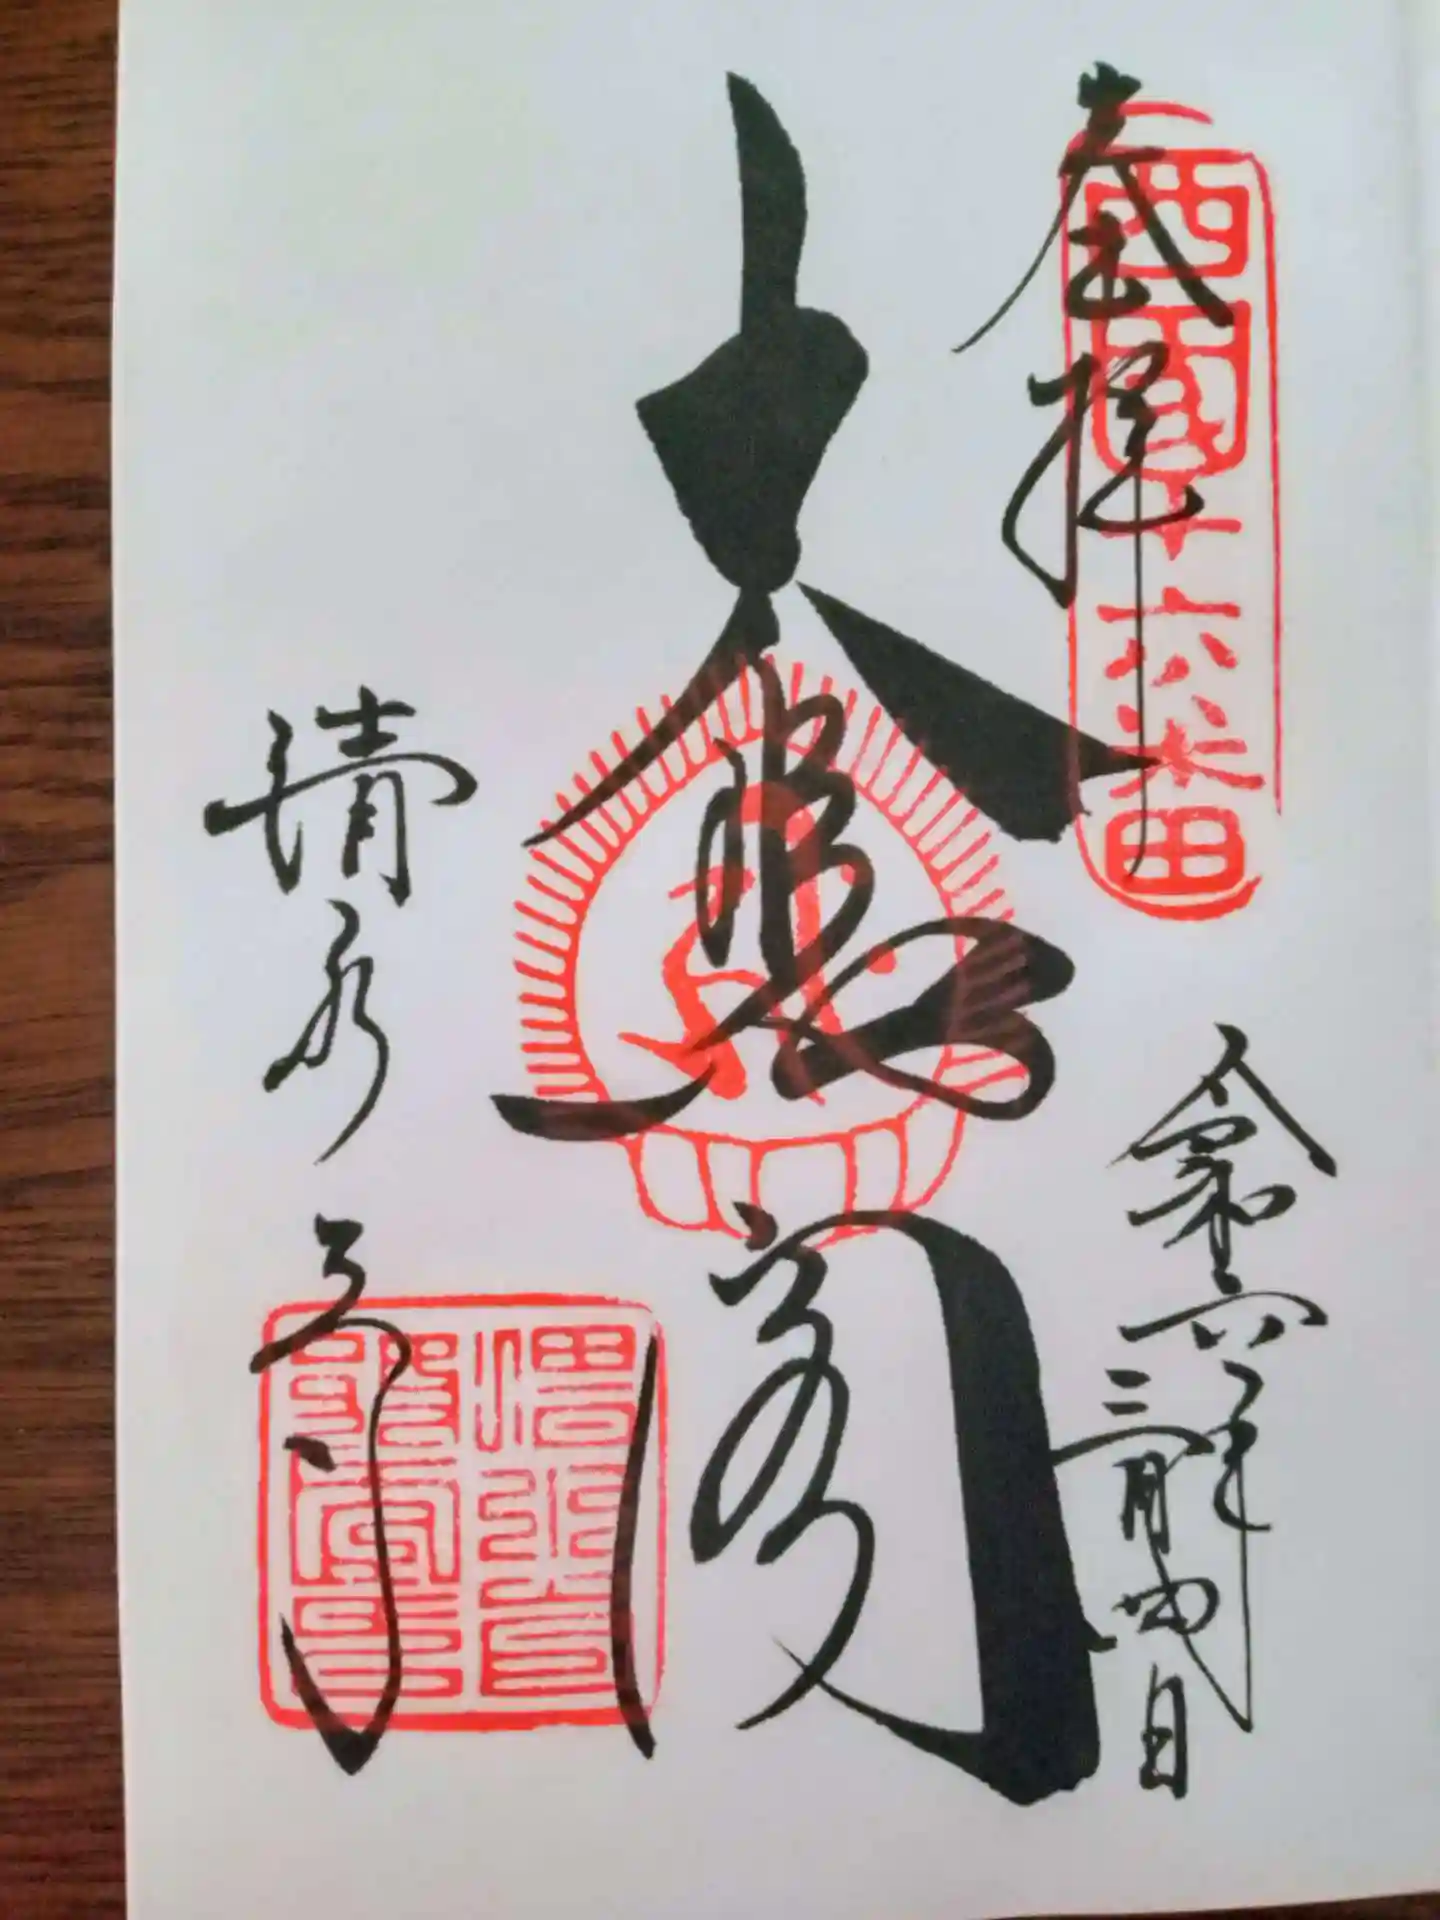 奉拝
西国十六番
令和六年
三月四日
大悲閣
清水寺